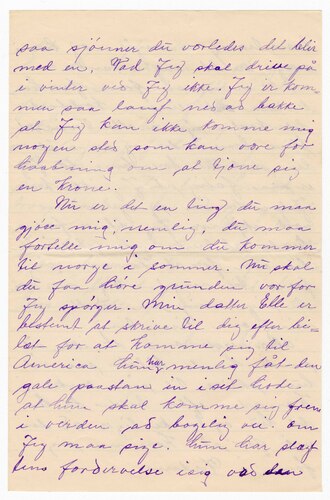 saa sjønner du vorledes det blir
med en. Vad Jeg skal drive på
i vinter ved Jeg ikke. Jeg er kom-
men saa langt ned ad bakke
at Jeg kan ikke komme mig
nogen sted som kan være for
haabning om at tjene sig
en krone.
Nu er det en ting du maa
gjøse mig, nemlig, du maa
fortelle mig om du kommer
til norge i sommer. Nu skal
du faa höre grunden vor for
Jeg spörger. Min datter Elle er
bestemt at skrive til dig efter
for at komme sig til
America hun har nemlig fåt den
gale paastan in i sit hode
at hun skal komme sig frem
i verden ad vei. om
Jeg maa sige. hun har slag
tens fordervelse i sig